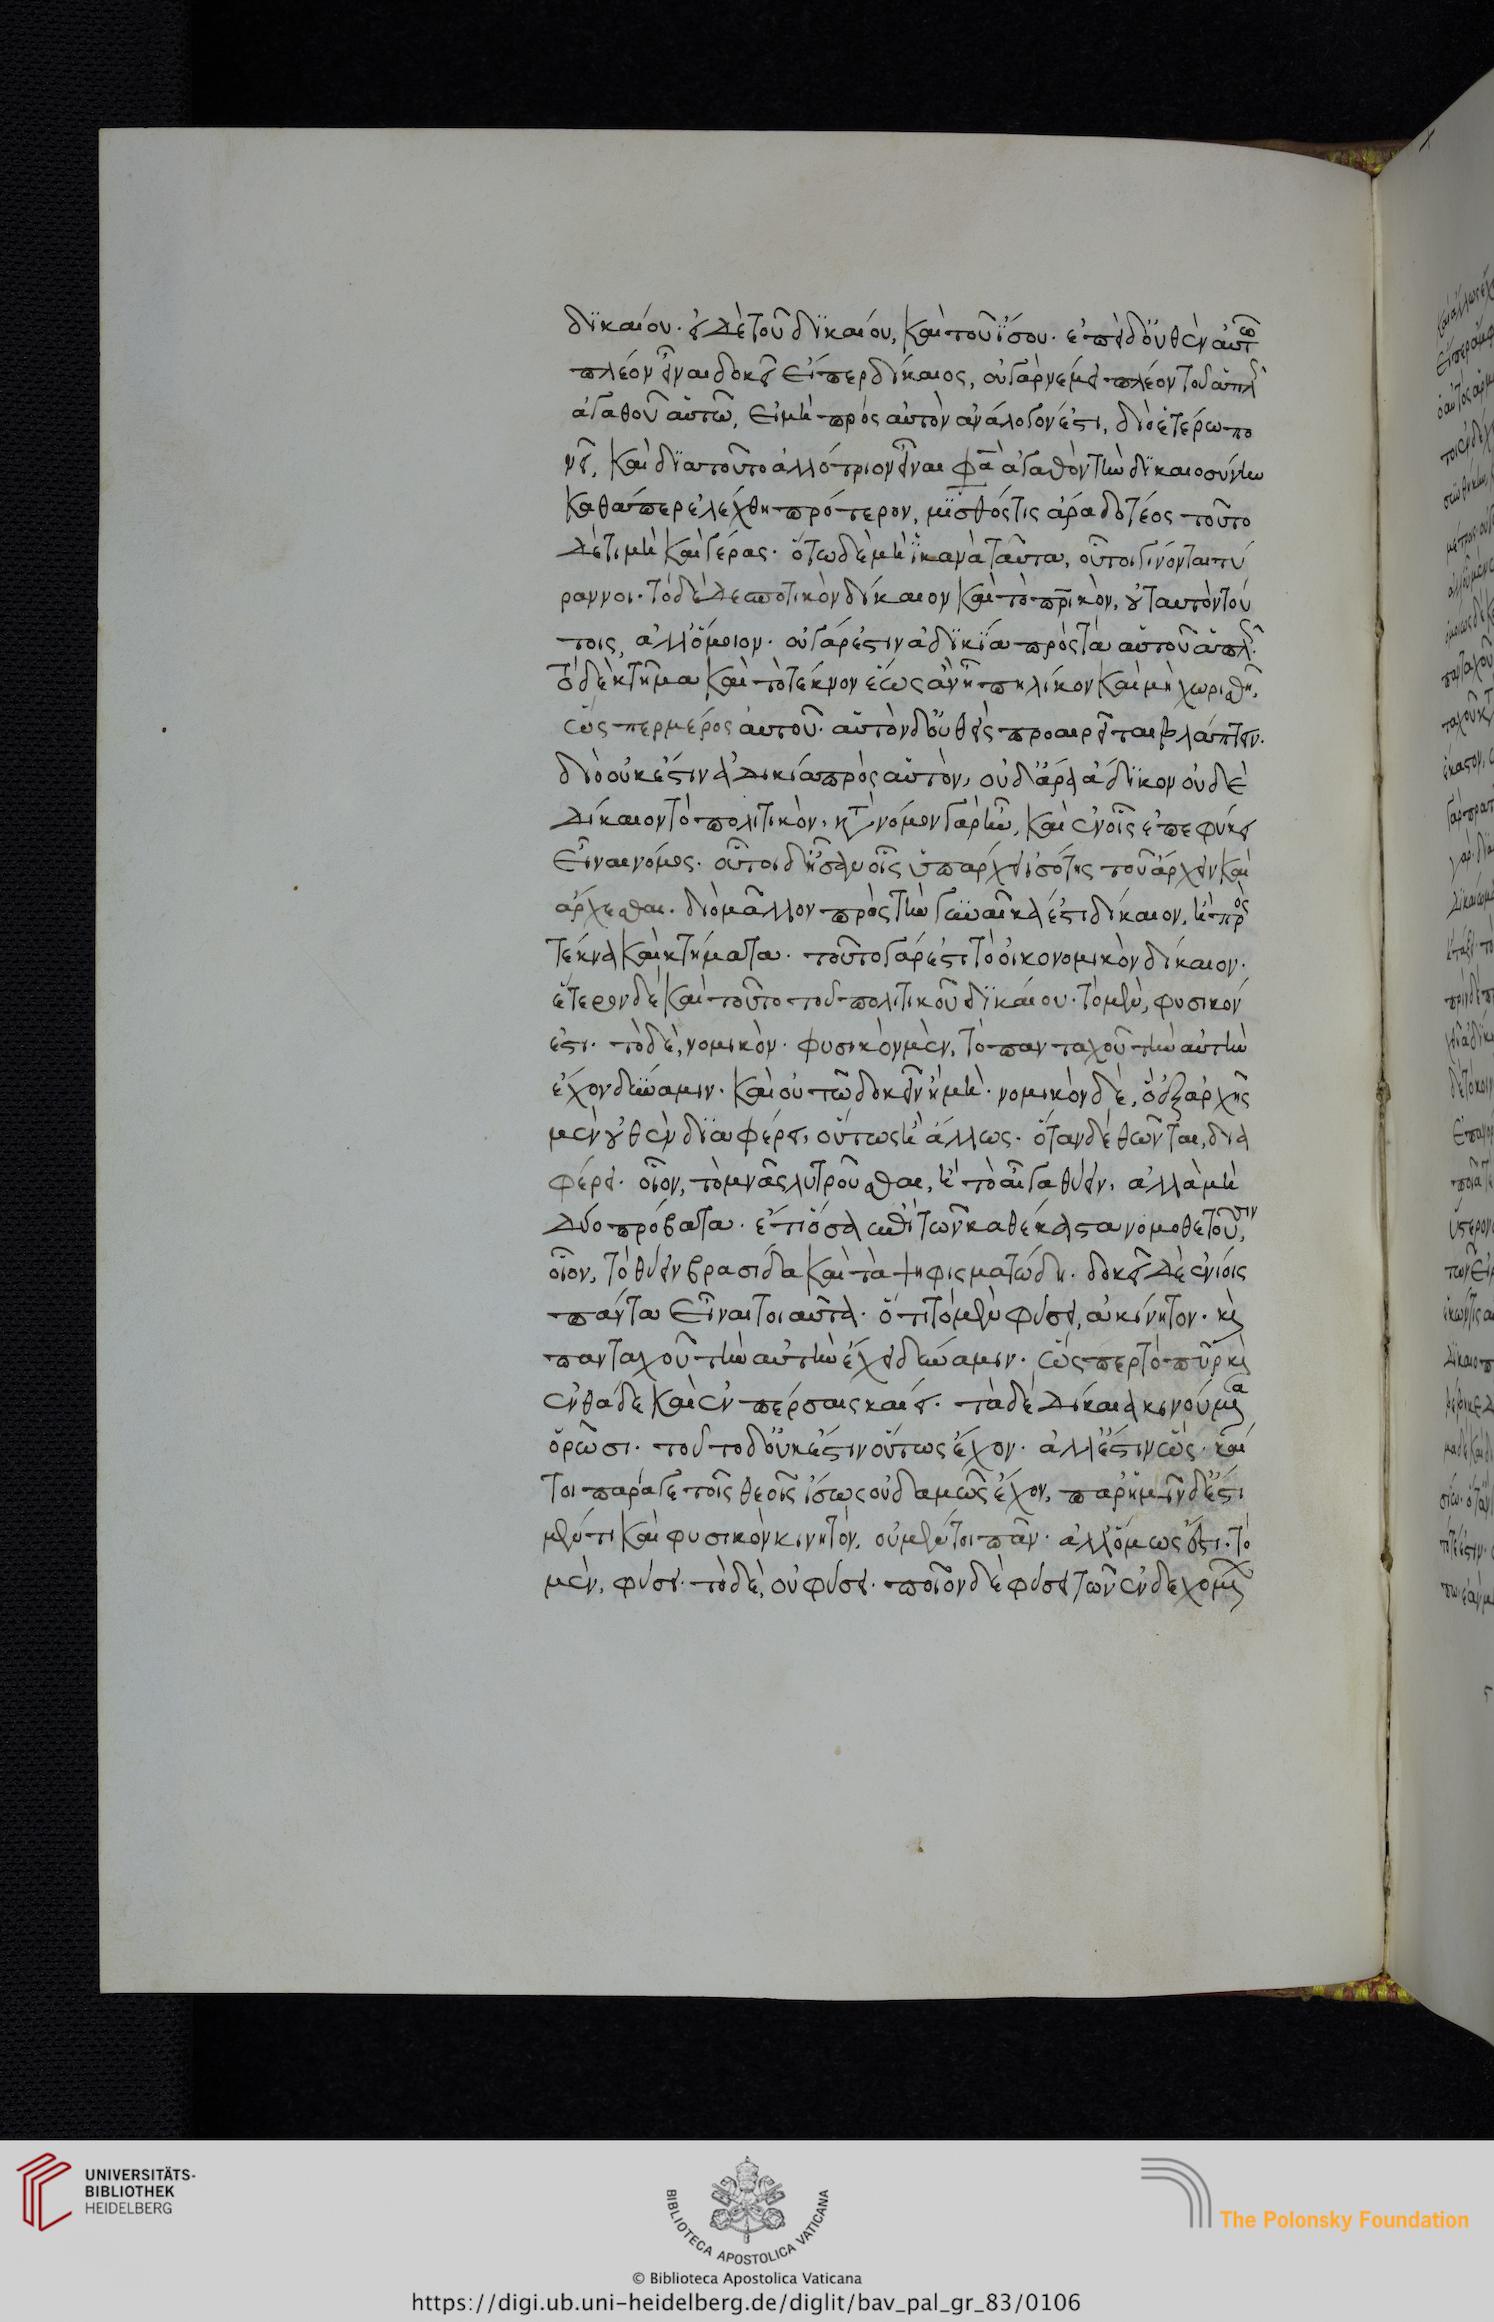 δϊκαίου. εἰ δὲ τοῦ δϊκαίου, καὶ τοῦ ἴσου. ἐπεὶ δ᾽ οὐθὲν αὐτῶ
πλέον εἶναι δοκεῖ εἴπερ δίκαιος, οὐ γὰρ νέμει πλέον τοῦ ἁπλ
ἀγαθοῦ αὐτῶ, εἰ μὴ πρὸς αὐτὸν ἀνάλογόν ἐστι, διὸ ἑτέρω πο
νεῖ, καὶ δϊὰ τοῦτο ἀλλότριον εἶναι φα ἀγαθὸν τὴν δϊκαιοσύνην
καθάπερ ἐλέχθη πρότερον, μϊσθός τις ἄρα δοτέος τοῦτο
δὲ τιμὴ καὶ γέρας. ὅτω δὲ μὴ ἱκανὰ ταῦτα, οὗτοι γίνονται τύ
ραννοι. τὸ δὲ δεσποτικὸν δίκαιον καὶ τὸ πρικὸν, οὐ ταυτὸν τού
τοις, ἀλλ᾽ ὅμοιον. οὐ γάρ ἐστιν ἀδϊκΐα πρὸς τὰ αὑτοῦ ἁπλ.
τὸ δὲ κτῆμα καὶ τὸ τέκνον ἕως ἂν ἦ πηλίκον καὶ μὴ χωρισθῆ,
ὥσπερ μέρος αὐτοῦ. αὑτὸν δ᾽ οὐθεὶς προαιρεῖται βλάπτειν.
διὸ οὐκ ἔστιν ἀδικία πρὸς αὑτὸν, οὐδ᾽ ἄρα ἄδϊκον οὐδὲ
δίκαιον τὸ πολιτικὸν, κτ νόμον γὰρ ἦν, καὶ ἐν οἷς ἐπεφύκει
εἶναι νόμος. οὗτοι δ᾽ ἦσαν οἷς ὑπάρχει ἰσότης τοῦ ἄρχειν καὶ
ἄρχεσθαι. διὸ μᾶλλον πρὸς τὴν γυναῖκα ἐστι δίκαιον, ἢ πρὸς
τέκνα καὶ κτήματα. τοῦτο γάρ ἐστι τὸ οἰκονομικὸν δίκαιον.
ἕτερον δὲ καὶ τοῦτο τοῦ πολιτικοῦ δϊκαίου. τὸ μὲν, φυσικόν
ἐστι. τὸ δὲ, νομικὸν. φυσικὸν μὲν, τὸ πανταχοῦ τὴν αὐτὴν
ἔχον δύναμιν. καὶ οὐ τῶ δοκεῖν ἢ μὴ. νομικὸν δὲ, ὃ ἐξαρχῆς
μὲν οὐθὲν δϊαφέρει, οὕτως ἢ ἄλλως. ὅταν δὲ θῶνται, δια
φέρει. οἷον, τὸ μνᾶς λυτροῦσθαι, ἢ τὸ αἶγα θύειν, ἀλλὰ μὴ
δύο πρόβατα. ἔτι ὅσα ἐπὶ τῶν καθέκαστα νομοθετοῦσιν,
οἷον, τὸ θύειν βρασίδα καὶ τὰ ψηφισματώδη. δοκεῖ δὲ ἐνίοις
πάντα εἶναι τοιαῦτα. ὅτι τὸ μὲν φύσει, ἀκίνητον. καὶ
πανταχοῦ τὴν αὐτὴν ἔχει δύναμιν. ὥσπερ τὸ πῦρ καὶ
ἐνθάδε καὶ ἐν πέρσαις καίει. τὰ δὲ δίκαια κινούμενα
ὁρῶσι. τοῦτο δ᾽ οὐκ ἔστιν οὕτως ἔχον. ἀλλ᾽ ἔστιν ὥς. καί
τοι παρά γε τοῖς θεοῖς ἴσως οὐδαμῶς ἔχον, παρ᾽ ἡμῖν δ᾽ ἐστι
μέν τι καὶ φυσικὸν κινητὸν, οὐ μέντοι πᾶν. ἀλλ᾽ ὅμως ἐστι. τὸ
μὲν, φύσει. τὸ δὲ, οὐ φύσει. ποῖον δὲ φύσει τῶν ἐνδεχομένων
UNIVERSITÄTS-
BIBLIOTHEK
HEIDELBERG
BIBLIOTECA APOSTOLICA VATICANA
The Polonsky Foundation
© Biblioteca Apostolica Vaticana
https://digi.ub.uni-heidelberg.de/diglit/bav_pal_gr_83/0106